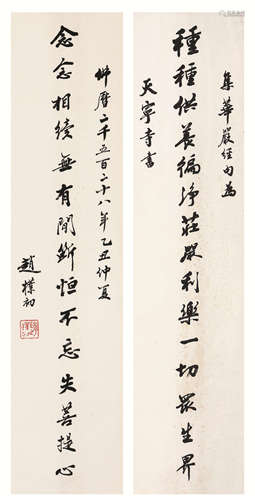 集華嚴經句為
種種供養徧淨莊嚴利樂一切眾生界
天寧寺書
佛曆二千五百二十八年乙丑仲夏
念念相續無有間斷恒不忘失菩提心
趙樸初